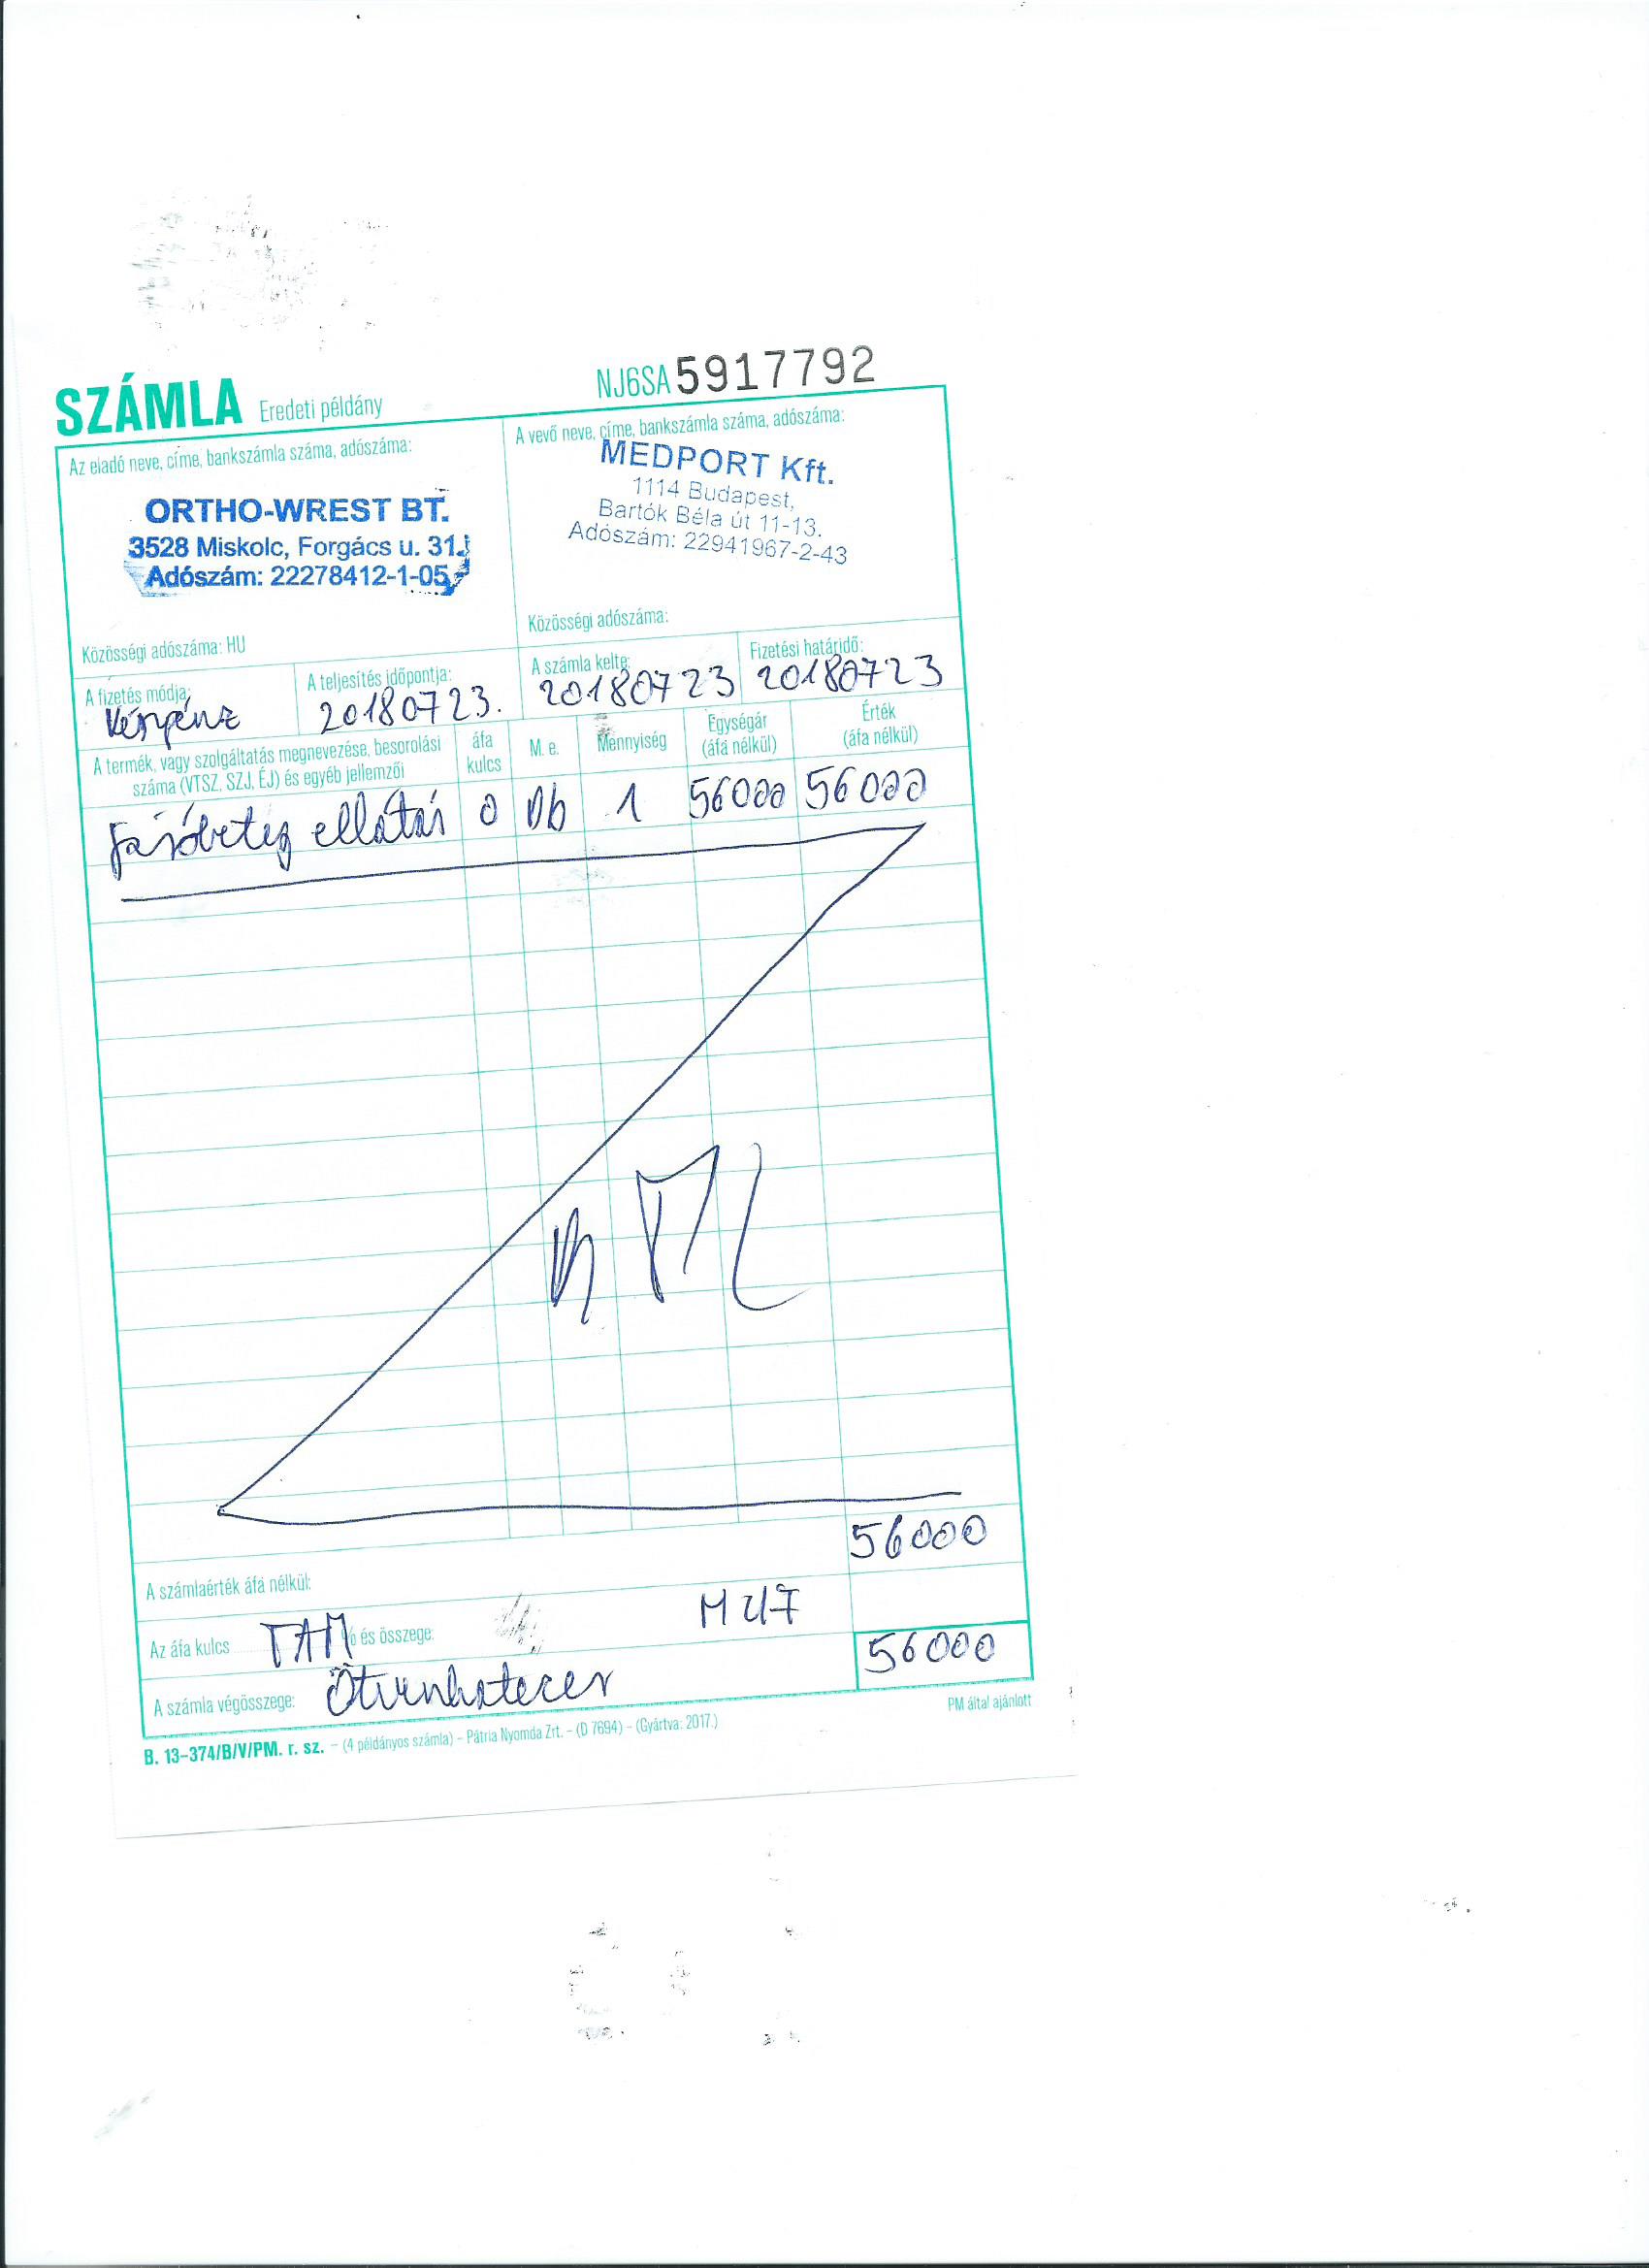 SZÁMLA Eredeti példány NJ6SA 5917792
Az eladó neve, címe, bankszámla száma, adószáma:
ORTHO-WREST BT.
3528 Miskolc, Forgács u. 31.
Adószám: 22278412-1-05
Közösségi adószáma: HU
A vevő neve, címe, bankszámla száma, adószáma:
MEDPORT Kft.
1114 Budapest,
Bartók Béla út 11-13.
Adószám: 22941967-2-43
Közösségi adószáma:
A fizetés módja: A teljesítés időpontja: A számla kelte: Fizetési határidő:
Készpénz 20180723. 20180723 20180723
A termék, vagy szolgáltatás megnevezése, besorolási száma (VTSZ, SZJ, ÉJ) és egyéb jellemzői
áfa kulcs
M. e.
Mennyiség
Egységár (áfa nélkül)
Érték (áfa nélkül)
Járóbeteg ellátás 0 Db 1 56000 56000
A számlaérték áfa nélkül: 56000
Az áfa kulcs TAM % és összege:
A számla végösszege: Ötvenhatezer 56000
PM által ajánlott
B. 13-374/B/V/PM. r. sz. – (4 példányos számla) – Pátria Nyomda Zrt. – (D 7694) – (Gyártva: 2017.)